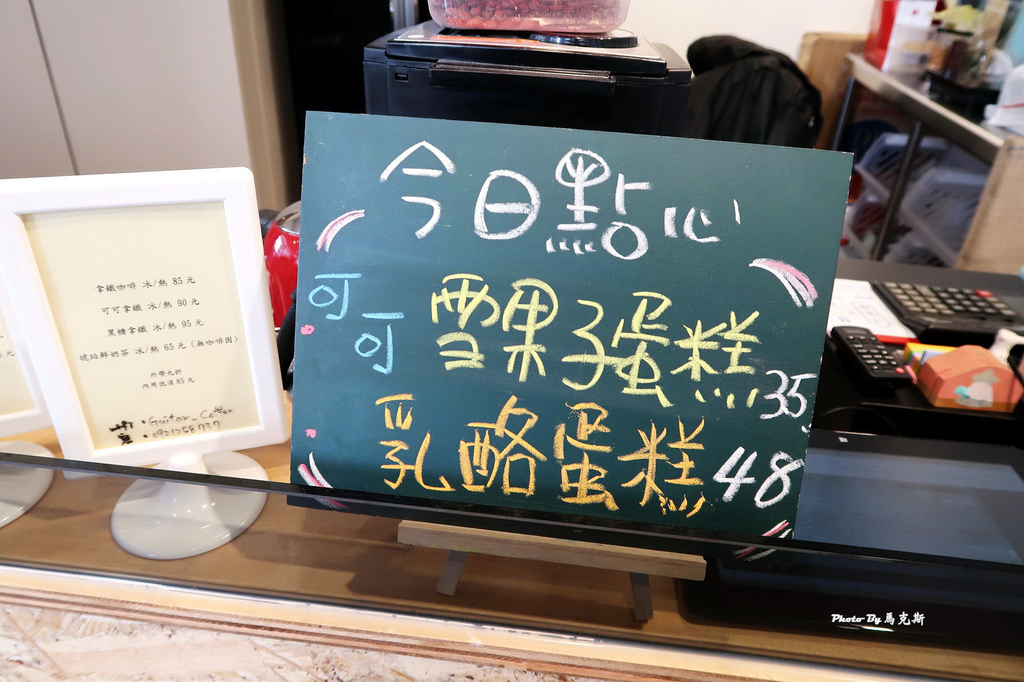 拿鐵咖啡 冰/熱 85 元
可可拿鐵 冰/熱 90 元
黑糖拿鐵 冰/熱 95 元
琥珀鮮奶茶 冰/熱 65 元 (無咖啡因)
外帶九折
內用低消 85 元
0921258737
今日點心
可可 雪果子蛋糕 35
乳酪蛋糕 48
Photo By 馬克斯